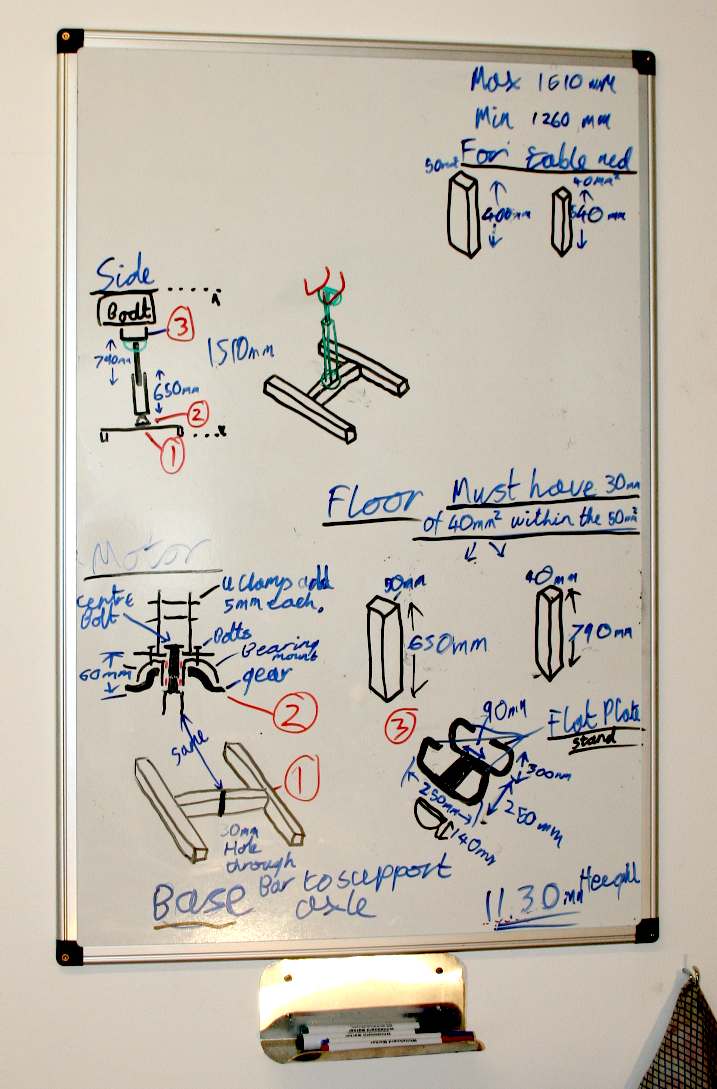 Max 1610 mm
Min 1260 mm
50mm²
40mm²
400mm
540mm
Side
Bodt
3
790mm
1510mm
650mm
2
1
Floor Must have 30mm
of 40mm² within the 50mm²
Motor
centre
Bolt
U Clamp add
5mm each.
Bolts
Bearing
mount
60mm
gear
2
50mm
650mm
40mm
790mm
3
90mm
Flat Plate
stand
300mm
250mm
250mm
140mm
same
1
30mm
Hole
through
Base
Bar to support
axle
1130mm
Whiteboard Marker